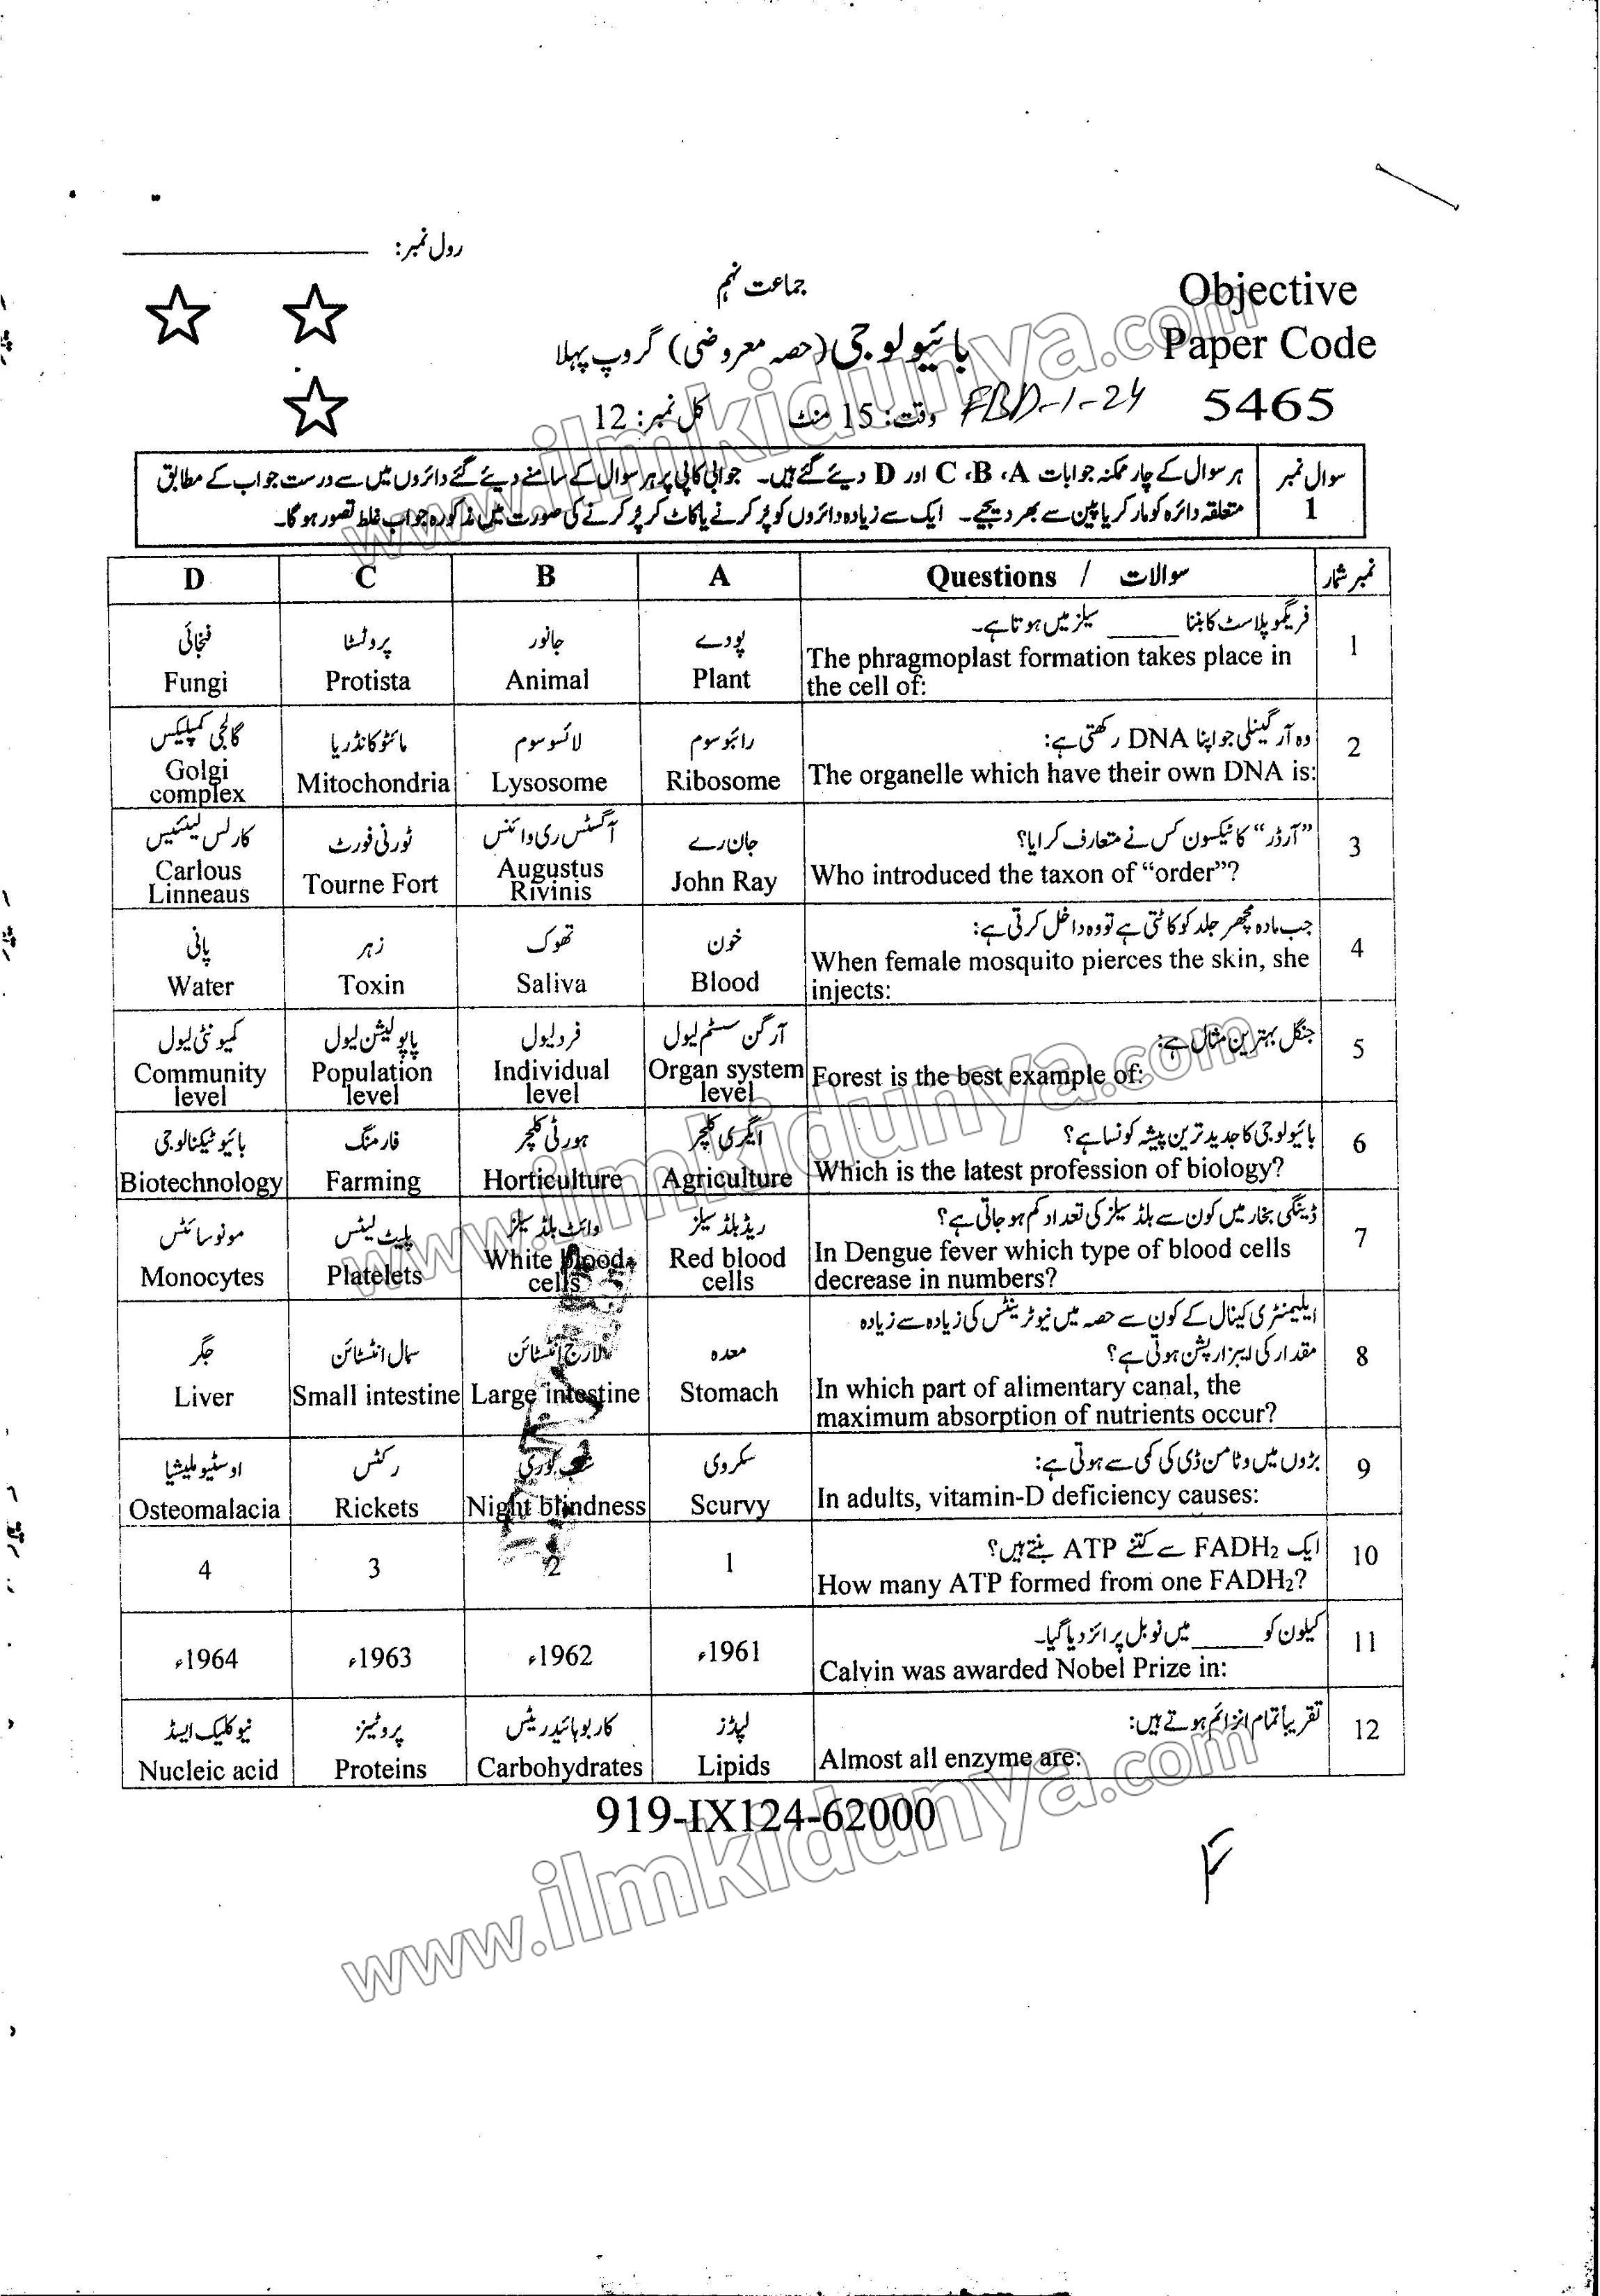 رول نمبر:
جماعت نہم
Objective
Paper Code
5465
بائیولوجی (حصہ معروضی) گروپ پہلا
وقت: 15 منٹ کل نمبر: 12
FBD-1-24
سوال نمبر 1
ہر سوال کے چار ممکنہ جوابات A، B، C اور D دیئے گئے ہیں۔ جوابی کاپی پر ہر سوال کے سامنے دیئے گئے دائروں میں سے درست جواب کے مطابق
متعلقہ دائرہ کو مارکر یا پین سے بھر دیجیے۔ ایک سے زیادہ دائروں کو پُر کرنے یا کاٹ کر پُر کرنے کی صورت میں مذکورہ جواب غلط تصور ہو گا۔
نمبر شمار Questions / سوالات A B C D
1
فریگموپلاسٹ کا بننا ______ سیلز میں ہوتا ہے۔
The phragmoplast formation takes place in
the cell of:
پودے
Plant
جانور
Animal
پروٹسٹا
Protista
فنجائی
Fungi
2
وہ آرگینلی جو اپنا DNA رکھتی ہے:
The organelle which have their own DNA is:
رائبوسوم
Ribosome
لائسوسوم
Lysosome
مائٹوکانڈریا
Mitochondria
گالجی کمپلیکس
Golgi
complex
3
”آرڈر“ کا ٹیکسون کس نے متعارف کرایا؟
Who introduced the taxon of “order”?
جان رے
John Ray
آگسٹس ری وائنس
Augustus
Rivinis
ٹورنی فورٹ
Tourne Fort
کارلس لینیئس
Carlous
Linneaus
4
جب مادہ مچھر جلد کو کاٹتی ہے تو وہ داخل کرتی ہے:
When female mosquito pierces the skin, she
injects:
خون
Blood
تھوک
Saliva
زہر
Toxin
پانی
Water
5
جنگل بہترین مثال ہے:
Forest is the best example of:
آرگن سسٹم لیول
Organ system
level
فرد لیول
Individual
level
پاپولیشن لیول
Population
level
کمیونٹی لیول
Community
level
6
بائیولوجی کا جدید ترین پیشہ کونسا ہے؟
Which is the latest profession of biology?
ایگری کلچر
Agriculture
ہورٹی کلچر
Horticulture
فارمنگ
Farming
بائیوٹیکنالوجی
Biotechnology
7
ڈینگی بخار میں کون سے بلڈ سیلز کی تعداد کم ہو جاتی ہے؟
In Dengue fever which type of blood cells
decrease in numbers?
ریڈ بلڈ سیلز
Red blood
cells
وائٹ بلڈ سیلز
White blood
cells
پلیٹ لیٹس
Platelets
مونوسائٹس
Monocytes
8
ایلیمنٹری کینال کے کون سے حصہ میں نیوٹرینٹس کی زیادہ سے زیادہ
مقدار کی ایبزارپشن ہوتی ہے؟
In which part of alimentary canal, the
maximum absorption of nutrients occur?
معدہ
Stomach
لارج انٹسٹائن
Large intestine
سمال انٹسٹائن
Small intestine
جگر
Liver
9
بڑوں میں وٹامن ڈی کی کمی سے ہوتی ہے:
In adults, vitamin-D deficiency causes:
سکروی
Scurvy
شب کوری
Night blindness
رکٹس
Rickets
اوسٹیوملیشیا
Osteomalacia
10
ایک FADH₂ سے کتنے ATP بنتے ہیں؟
How many ATP formed from one FADH₂?
1
2
3
4
11
کیلون کو ______ میں نوبل پرائز دیا گیا۔
Calvin was awarded Nobel Prize in:
1961ء
1962ء
1963ء
1964ء
12
تقریباً تمام انزائم ہوتے ہیں:
Almost all enzyme are:
لپڈز
Lipids
کاربوہائیڈریٹس
Carbohydrates
پروٹینز
Proteins
نیوکلیک ایسڈ
Nucleic acid
919-IX124-62000
www.ilmkidunya.com
www.ilmkidunya.com
www.ilmkidunya.com